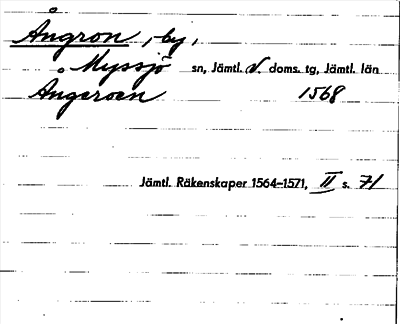 Ångron, by,
Myssjö sn, Jämtl. V. doms. tg, Jämtl. län
Ångeroen 1568
Jämtl. Räkenskaper 1564-1571, II s. 71